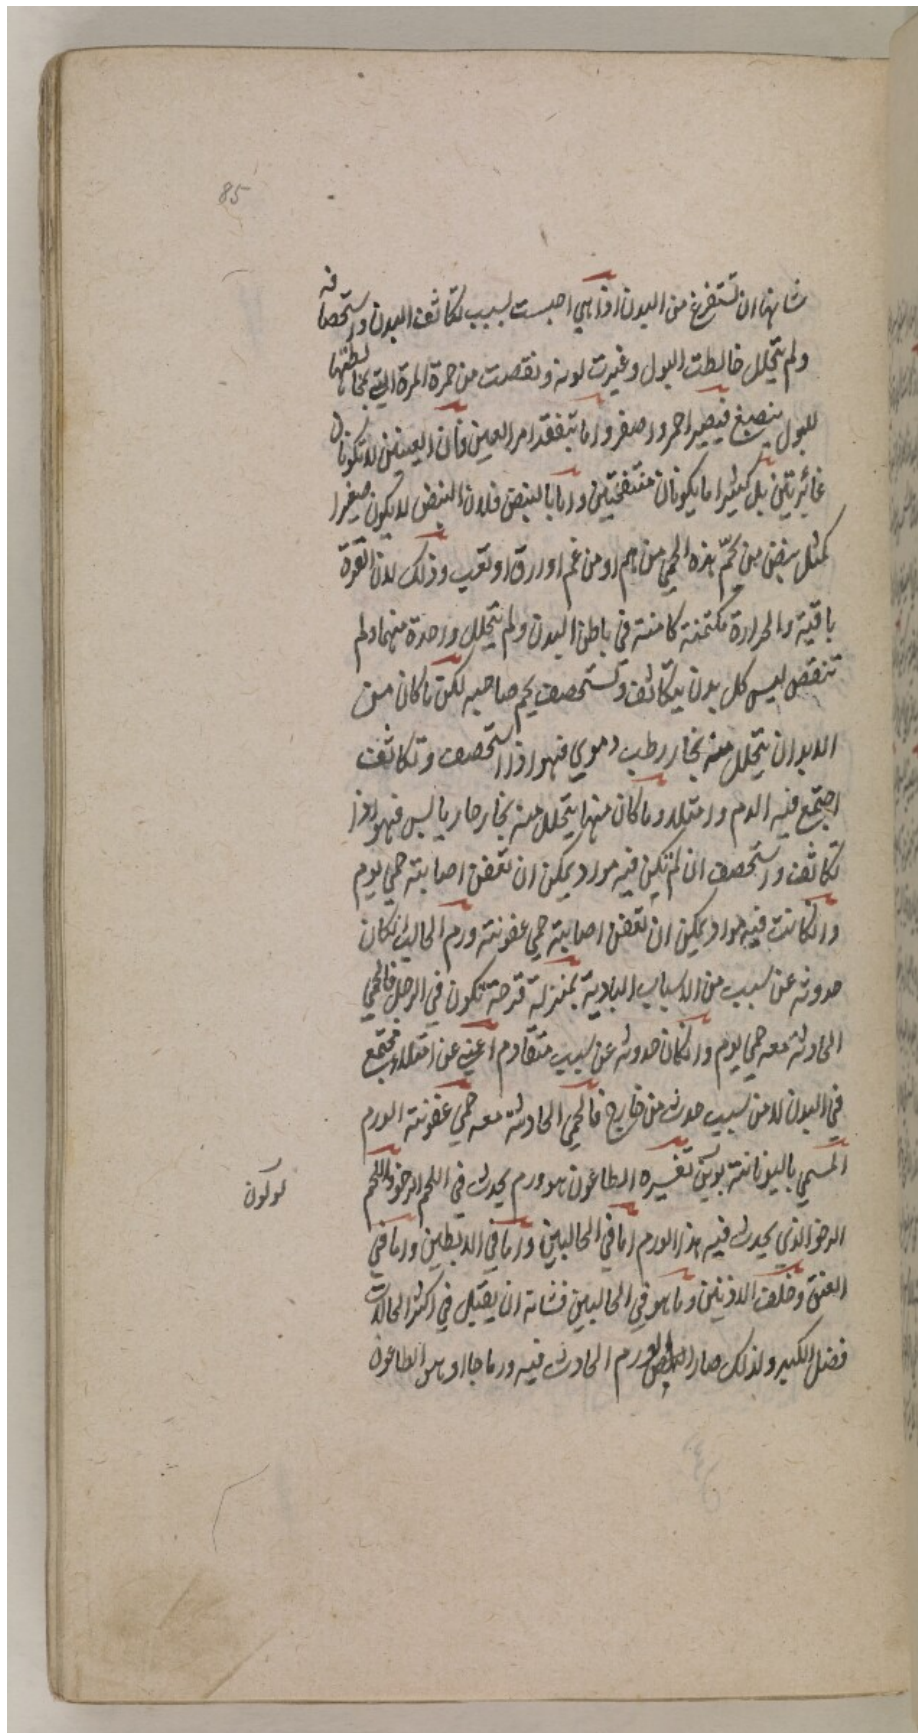 85
شانها ان تستفرغ من البدن اذا هي احبست بسبب تكاثف البدن واستحصافه
ولم يتحلل خالطت البول وغيرت لونه ونقصت من حمرة المرة التي بمخالطتها
للبول ينصبغ فيصير احمر واصفر واما بتفقد امر العين فان العينين لا تكونان
غائرتين بل كثيرا ما يكونان منتفختين واما بالنبض فلان النبض لا يكون صغيرا
كمثل نبض من يحمّ هذه الحمي من هم او من غم او ارق او تعب وذلك لان القوة
باقية والحرارة مكتمنة كامنة في باطن البدن ولم يتحلل واحدة منهما ولم
تنقص ليس كل بدن يتكاثف وتستحصف يحم صاحبه لكن ما كان من
الابدان يتحلل منه بخار رطب دموي فهو اذا استحصف وتكاثف
اجتمع فيه الدم وامتلا وما كان منها يتحلل منه بخار حار يابس فهو اذا
تكاثف واستحصف ان لم تكن فيه مواد يمكن ان تعفن اصابته حمي يوم
وان كانت فيه مواد يمكن ان تعفن اصابته حمي عفونته ورم الحالب ان كان
حدوثه عن سبب من الاسباب البادية بمنزلة قرحة تكون في الرجل فالحمي
الحادثة معه حمي يوم وان كان حدوثه عن سبب متقادم اعني عن امتلاء مجتمع
في البدن لا من سبب حدث من خارج فالحمي الحادثة معه حمي عفونته الورم
المسمي باليونانية بوبن تفسيره الطاعون هو ورم يحدث في اللحم الرخو واللحم
الرخو الذي يحدث فيه هذا الورم اما في الحالبين واما في الابطين واما في
العنق وخلف الاذنين وما هو في الحالبين فشانه ان يقبل في اكثر الحالات
فضل الكبد ولذلك صار الورم الحادث فيه ورما حارا وهو الطاعون